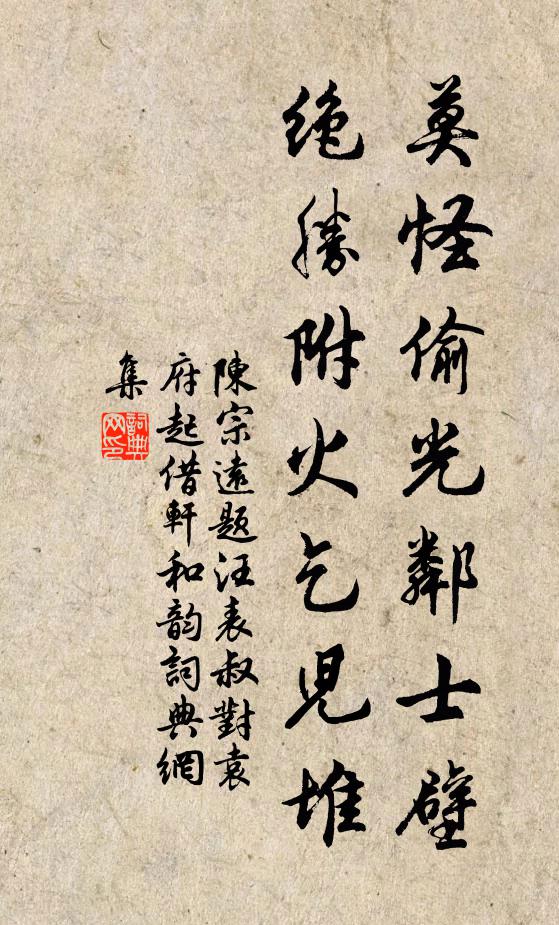 莫怪偷光鄰士壁
絶勝附火乞兒堆
陳宗遠題汪表叔對袁
府起借軒和韵詞典網
集
詞典網印